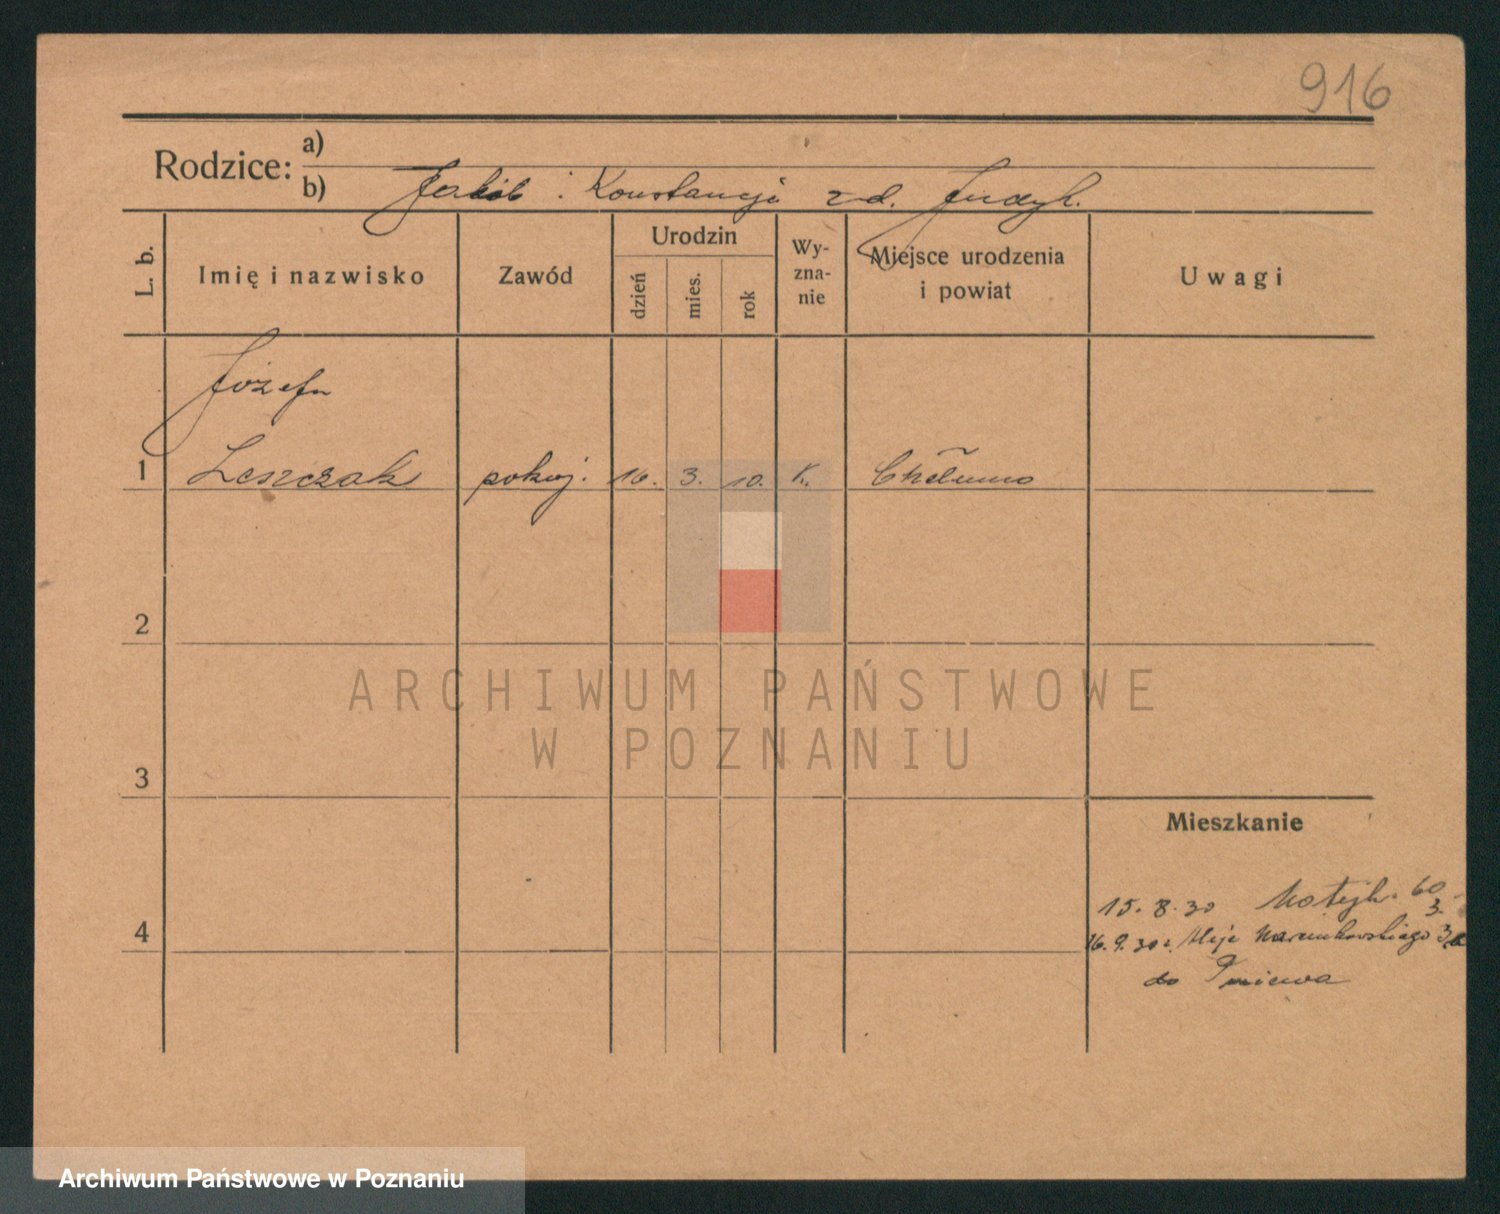 916
Rodzice:
a)
b) Jakób i Konstancji zd. Judyk.
L. b.
Imię i nazwisko
Zawód
Urodzin
dzień
mies.
rok
Wy-
zna-
nie
Miejsce urodzenia
i powiat
Uwagi
Józefa
1 Leszczak pokoj. 16. 3. 10. K. Chełmno
2
ARCHIWUM PAŃSTWOWE
W POZNANIU
3
Mieszkanie
15. 8. 30 Matejk. 60
3.
4
16. 9. 30 Aleje Marcinkowskiego 3
do Gniewa
Archiwum Państwowe w Poznaniu